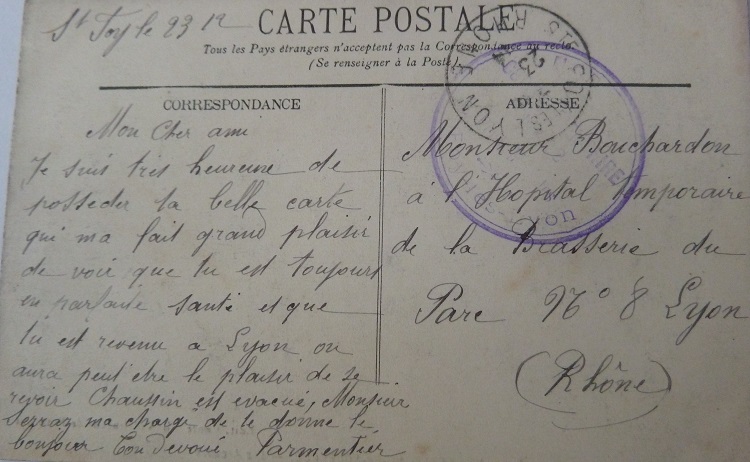 St Foy le 23 12
CARTE POSTALE
Tous les Pays étrangers n'acceptent pas la Correspondance au recto.
(Se renseigner à la Poste).
CORRESPONDANCE
Mon Cher ami
Je suis très heureuse de
posseder ta belle carte
qui ma fait grand plaisir
de voir que tu est toujours
en parfaite santé et que
tu est revenu a Lyon on
aura peut être le plaisir de se
revoir Chaussin est evacué, Monsieur
Serraz ma chargé de te donne le
bonjour Ton Devoué Parmentier
ADRESSE
Monsieur Bouchardon
à l'Hopital temporaire
de la Brasserie du
Parc No 8 Lyon
(Rhône)
LYON
RHONE
23
Lyon